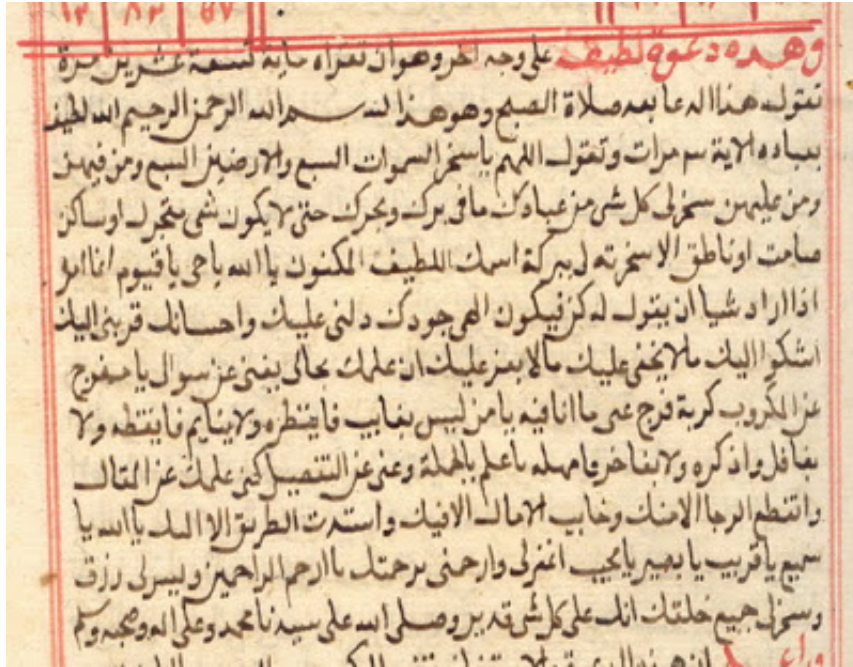 وهذه دعوة لطيفة على وجه اخر وهو ان تقراه ماية تسعة عشرين مرة
تقول هذا الدعا بعد صلاة الصبح وهو هذا بسم الله الرحمن الرحيم الله لطيف
بعباده الاية مرات وتقول اللهم يا سخر السموات السبع والارضين السبع ومن فيهن
ومن عليهن سخرلى كل شى من عبادك ما فى برك وبحرك حتى لا يكون شى متحرك او ساكن
صامت او ناطق الا سخرته لى ببركة اسمك اللطيف المكنون يا الله ياحى يا قيوم انما امر
اذا اراد شيا ان يقول له كن فيكون الهى جودك دلنى عليك واحسانك قربنى اليك
اشكوا اليك ما لا يخفى عليك ما لا يعز عليك ان علمك بحالى يغنى عن سوال يا مفرج
عن المكروب كربة فرج عنى ما انا فيه يا من ليس بغايب فانتظره ولا ينايم فايقظه ولا
بغافل واذكره ولا فامهله يا علم بالجملة وغنى عن التفصيل كفى علمك عن المقال
وانقطع الرجا الا منك وخاب الامال الا فيك واستدت الطريق الا اليك يا الله يا
سميع يا قريب يا بصير يا مجيب اغفرلى وارحمنى برحمتك يا ارحم الراحمين ويسرلى رزق
وسخرلى جميع خلقك انك على كل شى قدير وصلى الله على سيدنا محمد وعلى اله وصحبه وسلم